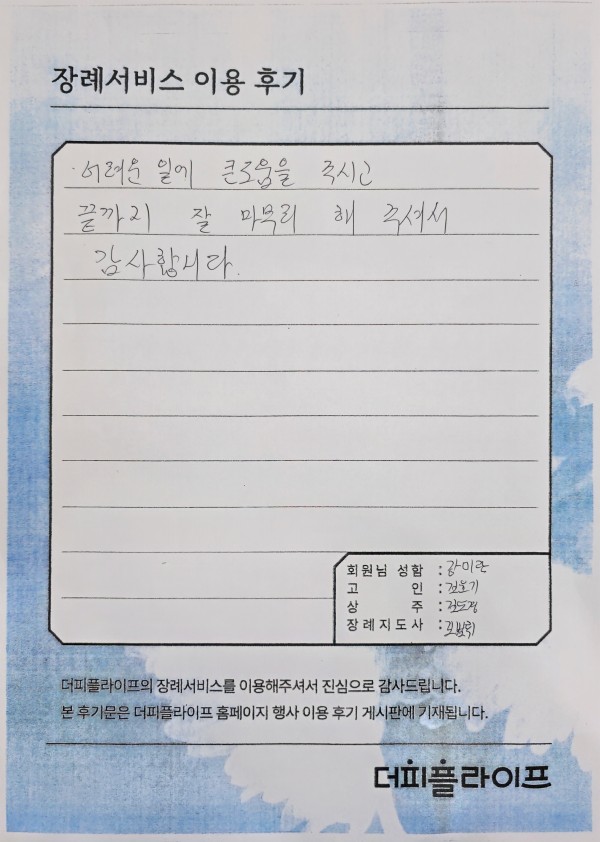 장례서비스 이용 후기
어려운 일에 큰도움을 주시고
끝까지 잘 마무리 해 주셔서
감사합니다.
회원님 성함 : 강미란
고 인 :
상 주 :
장례지도사 :
더피플라이프의 장례서비스를 이용해주셔서 진심으로 감사드립니다.
본 후기문은 더피플라이프 홈페이지 행사 이용 후기 게시판에 기재됩니다.
더피플라이프